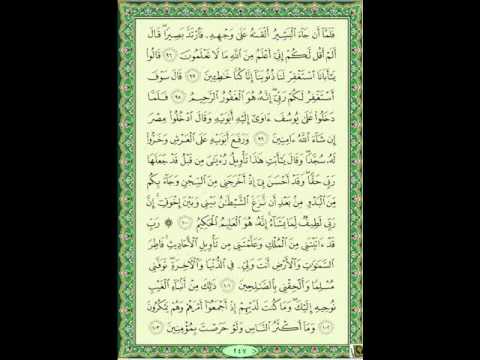 فَلَمَّآ أَن جَآءَ ٱلْبَشِيرُ أَلْقَىٰهُ عَلَىٰ وَجْهِهِۦ فَٱرْتَدَّ بَصِيرًا ۖ قَالَ
أَلَمْ أَقُل لَّكُمْ إِنِّىٓ أَعْلَمُ مِنَ ٱللَّهِ مَا لَا تَعْلَمُونَ ٩٦ قَالُوا۟
يَٰٓأَبَانَا ٱسْتَغْفِرْ لَنَا ذُنُوبَنَآ إِنَّا كُنَّا خَٰطِـِٔينَ ٩٧ قَالَ سَوْفَ
أَسْتَغْفِرُ لَكُمْ رَبِّىٓ ۖ إِنَّهُۥ هُوَ ٱلْغَفُورُ ٱلرَّحِيمُ ٩٨ فَلَمَّا
دَخَلُوا۟ عَلَىٰ يُوسُفَ ءَاوَىٰٓ إِلَيْهِ أَبَوَيْهِ وَقَالَ ٱدْخُلُوا۟ مِصْرَ
إِن شَآءَ ٱللَّهُ ءَامِنِينَ ٩٩ وَرَفَعَ أَبَوَيْهِ عَلَى ٱلْعَرْشِ وَخَرُّوا۟
لَهُۥ سُجَّدًا ۖ وَقَالَ يَٰٓأَبَتِ هَٰذَا تَأْوِيلُ رُءْيَٰىَ مِن قَبْلُ قَدْ جَعَلَهَا
رَبِّى حَقًّا ۖ وَقَدْ أَحْسَنَ بِىٓ إِذْ أَخْرَجَنِى مِنَ ٱلسِّجْنِ وَجَآءَ بِكُم
مِّنَ ٱلْبَدْوِ مِنۢ بَعْدِ أَن نَّزَغَ ٱلشَّيْطَٰنُ بَيْنِى وَبَيْنَ إِخْوَتِىٓ ۚ إِنَّ
رَبِّى لَطِيفٌ لِّمَا يَشَآءُ ۚ إِنَّهُۥ هُوَ ٱلْعَلِيمُ ٱلْحَكِيمُ ١٠٠ ۞ رَبِّ
قَدْ ءَاتَيْتَنِى مِنَ ٱلْمُلْكِ وَعَلَّمْتَنِى مِن تَأْوِيلِ ٱلْأَحَادِيثِ ۚ فَاطِرَ
ٱلسَّمَٰوَٰتِ وَٱلْأَرْضِ أَنتَ وَلِىِّۦ فِى ٱلدُّنْيَا وَٱلْـَٔاخِرَةِ ۖ تَوَفَّنِى
مُسْلِمًا وَأَلْحِقْنِى بِٱلصَّٰلِحِينَ ١٠١ ذَٰلِكَ مِنْ أَنۢبَآءِ ٱلْغَيْبِ
نُوحِيهِ إِلَيْكَ ۖ وَمَا كُنتَ لَدَيْهِمْ إِذْ أَجْمَعُوٓا۟ أَمْرَهُمْ وَهُمْ يَمْكُرُونَ
١٠٢ وَمَآ أَكْثَرُ ٱلنَّاسِ وَلَوْ حَرَصْتَ بِمُؤْمِنِينَ ١٠٣
٢٤٧